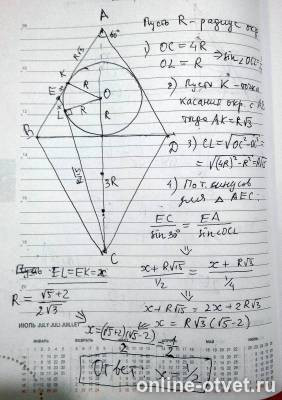 A
60°
R√3
K
R
E
x
R
O
L
R
B
D
R√15
3R
C
Пусть R - радиус окр
1) OC = 4R
OL = R ⇒ sin∠OCL =
2) Пусть K - точка
касания окр. с AB
тогда AK = R√3
3) CL = √OC²-R² =
= √(4R)²-R² = R√15
4) По т. синусов
для △ AEC:
EC / sin30° = EA / sin∠OCL
⇓
x+R√15 / 1/2 = x+R√3 / 1/4
⇓
x+R√15 = 2x+2R√3
x = R√3 (√5-2)
EL=EK=x
R = √5+2 / 2√3
x = (√5+2)(√5-2) / 2 = 1/2
Ответ: x = 1/2
ИЮЛЬ JULY JULI JUILLET
online-otvet.ru